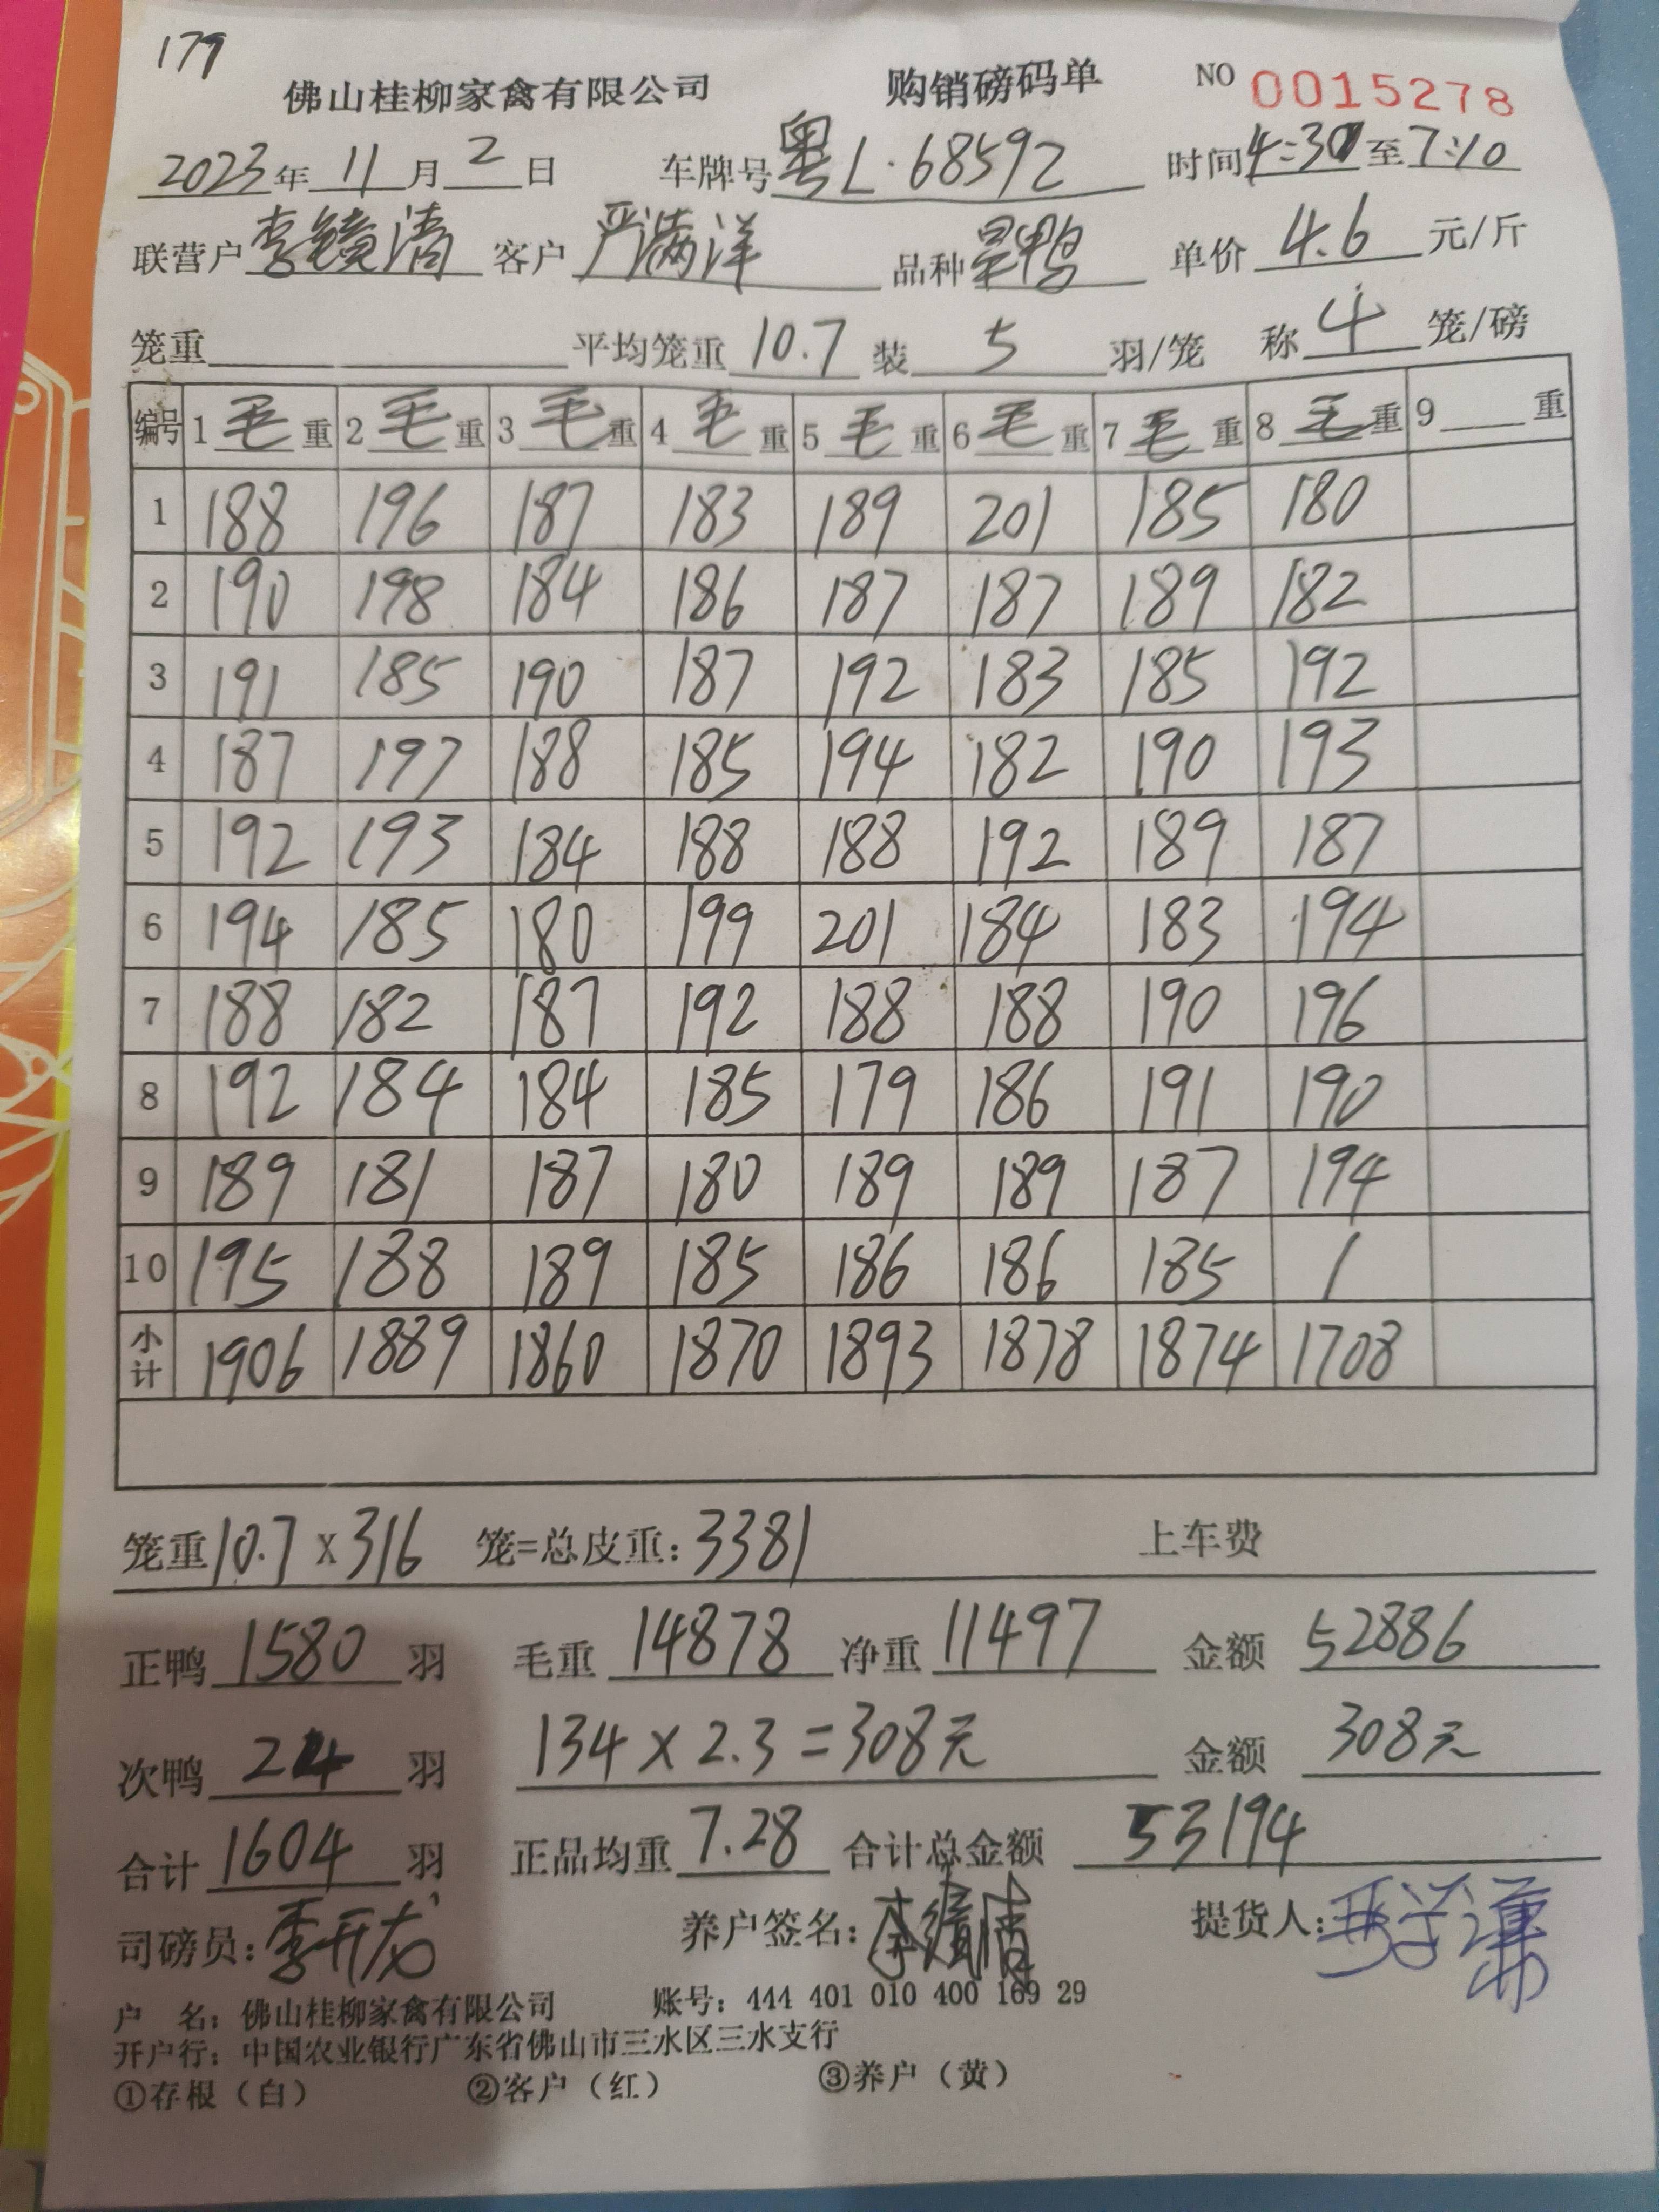 179
佛山桂柳家禽有限公司 购销磅码单 NO 0015278
2023年 11月 2日 车牌号 粤L·68592 时间 4:30 至 7:10
联营户 李镜清 客户 严满洋 品种 鸭 单价 4.6 元/斤
笼重 平均笼重 10.7 装 5 羽/笼 称 4 笼/磅
编号 1 毛 重 2 毛 重 3 毛 重 4 毛 重 5 毛 重 6 毛 重 7 毛 重 8 毛 重 9 重
1 188 196 187 183 189 201 185 180
2 190 198 184 186 187 187 189 182
3 191 185 190 187 192 183 185 192
4 187 197 188 185 194 182 190 193
5 192 193 184 188 188 192 189 187
6 194 185 180 199 201 184 183 194
7 188 182 187 192 188 188 190 196
8 192 184 184 185 179 186 191 190
9 189 181 187 180 189 189 187 194
10 195 188 189 185 186 186 185 /
小计 1906 1889 1860 1870 1893 1878 1874 1708
笼重 10.7 x 316 笼=总皮重: 3381 上车费
正鸭 1580 羽 毛重 14878 净重 11497 金额 52886
次鸭 24 羽 134 x 2.3 = 308元 金额 308元
合计 1604 羽 正品均重 7.28 合计总金额 53194
司磅员: 李开龙 养户签名: 李镜清 提货人:
户 名: 佛山桂柳家禽有限公司 账号: 444 401 010 400 169 29
开户行: 中国农业银行广东省佛山市三水区三水支行
①存根(白) ②客户(红) ③养户(黄)